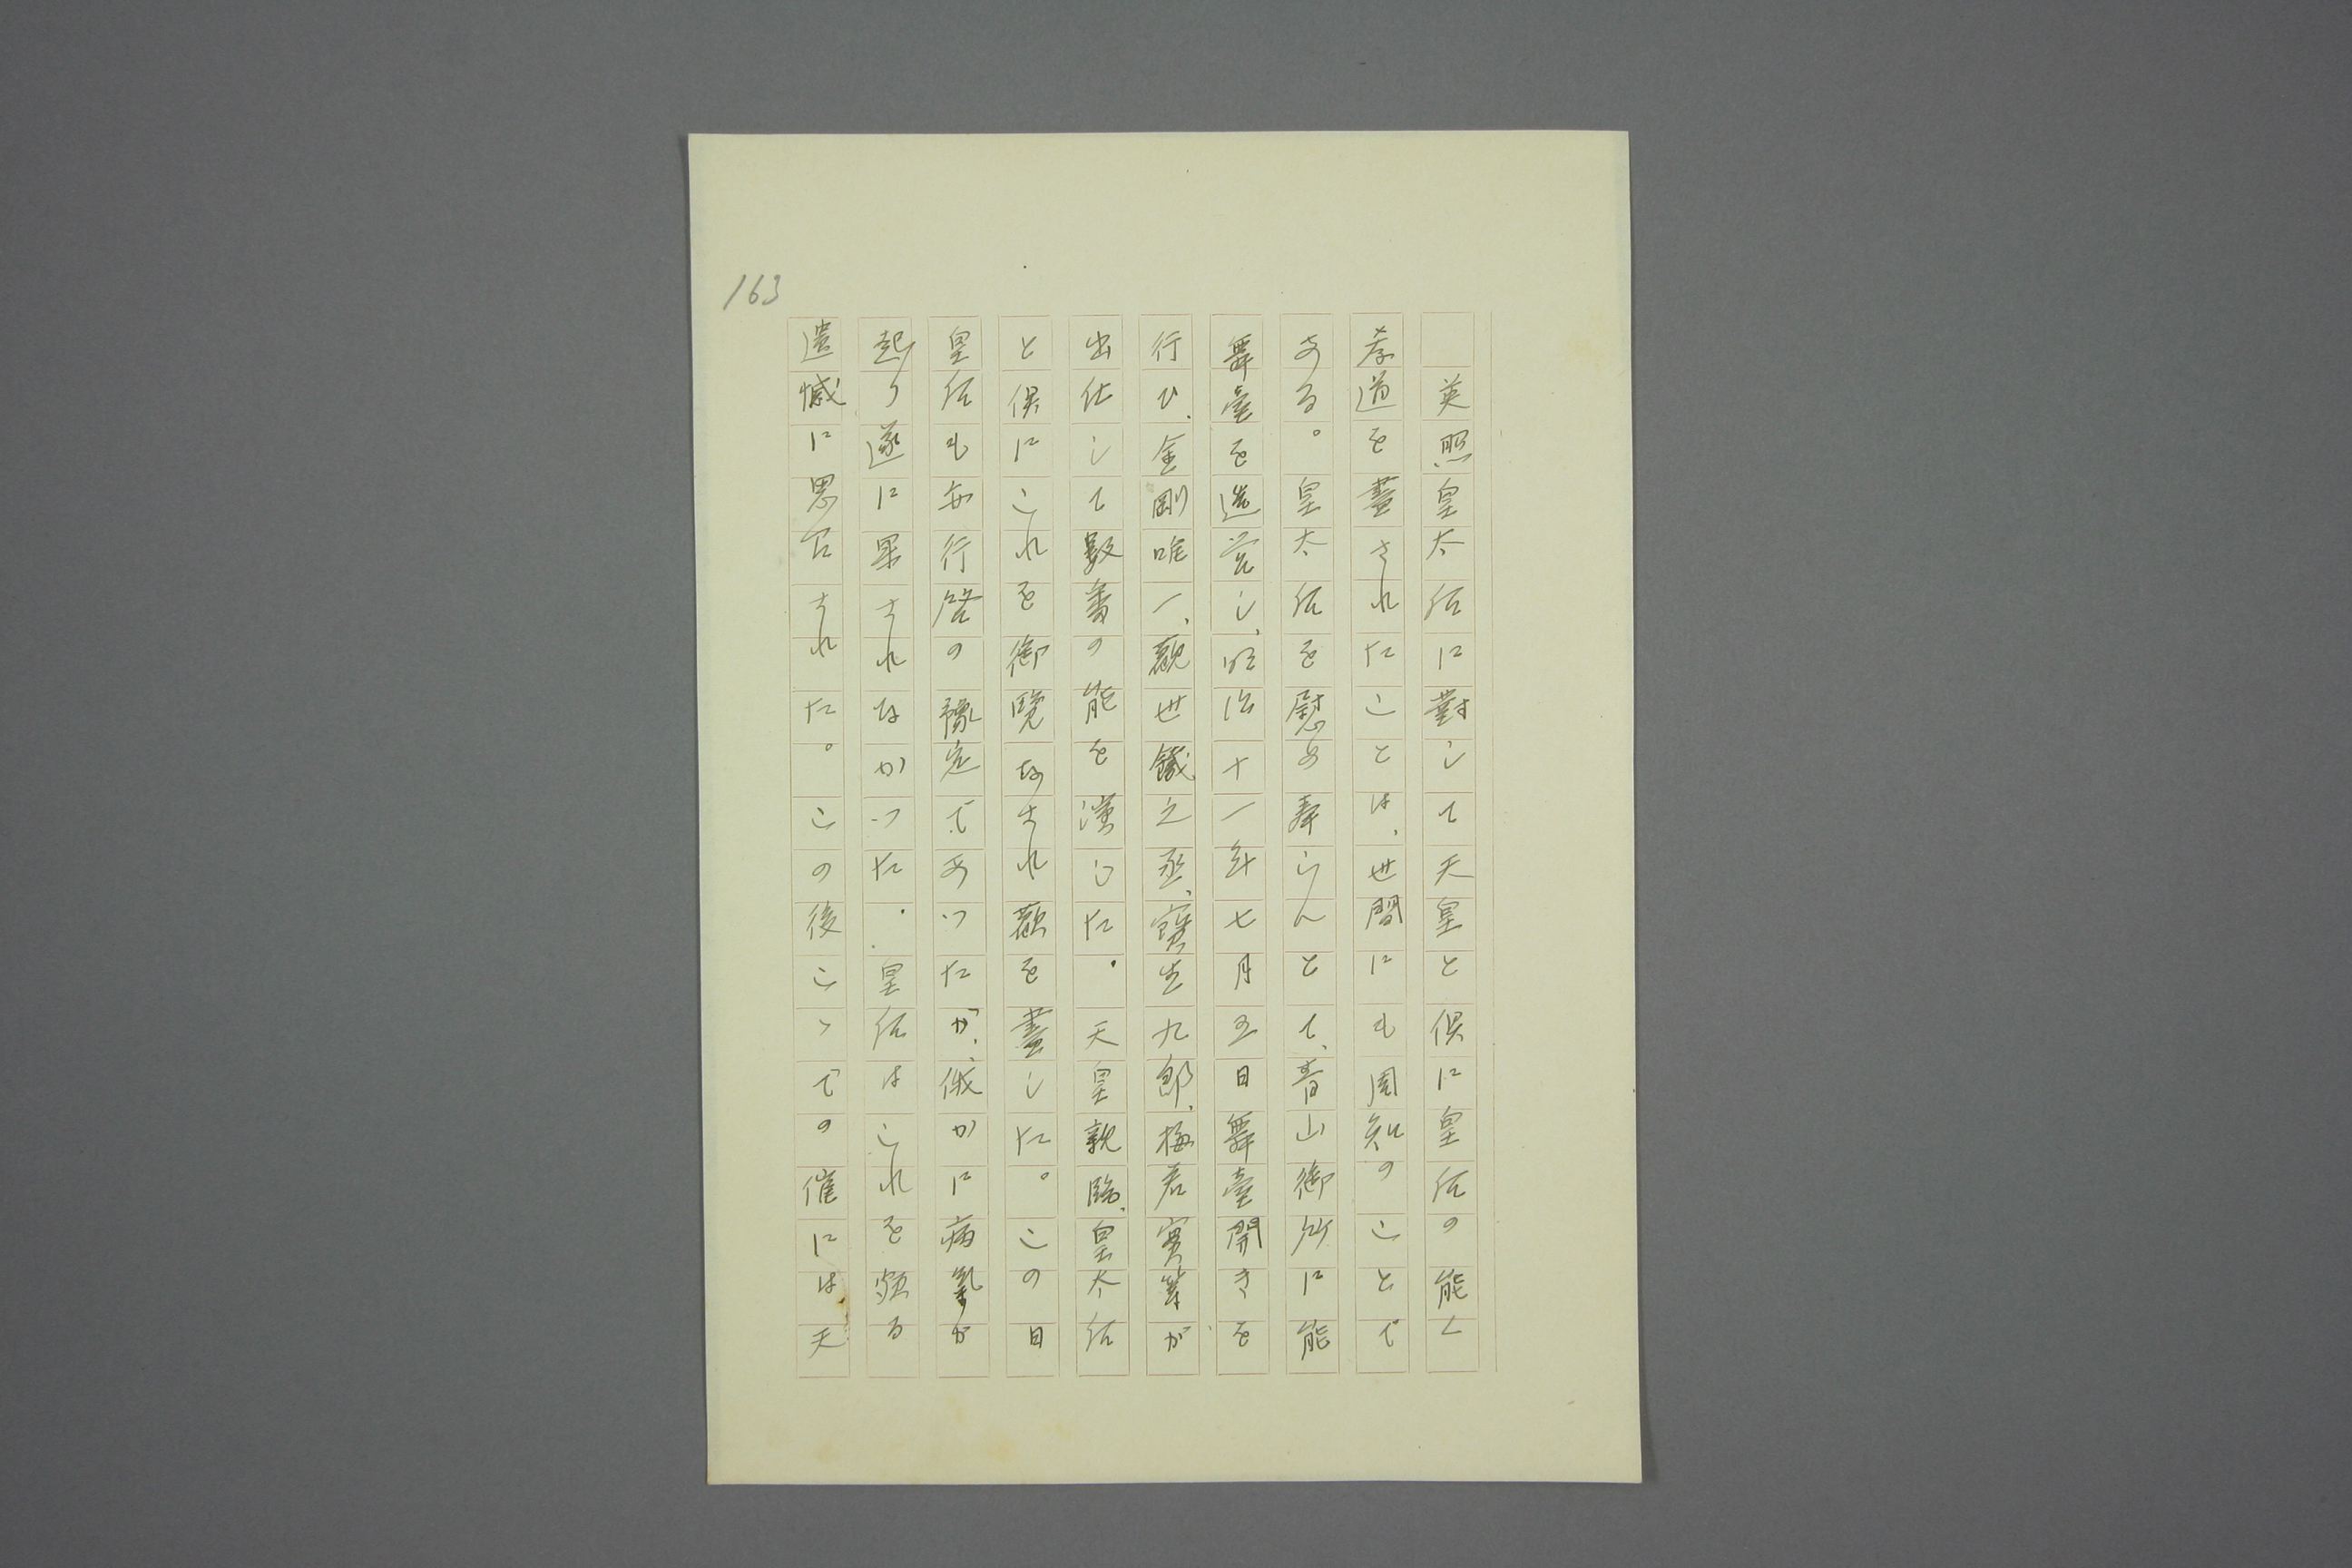 163
英照皇太后に對して天皇と倶に皇后の能く
孝道を盡されたことは、世間にも周知のことで
ある。皇太后を慰め奉らんとて、青山御所に能
舞臺を造営し、明治十一年七月五日舞臺開きを
行ひ、金剛唯一、観世鐵之丞、寶生九郎、梅若實等が
出仕して數番の能を演じた。天皇親臨、皇太后
と倶にこれを御覧なされ歡を盡した。この日
皇后も亦行啓の豫定であつたが、俄かに病氣が
起り遂に果されなかつた。皇后はこれを頗る
遺憾に思召された。この後こゝでの催には天